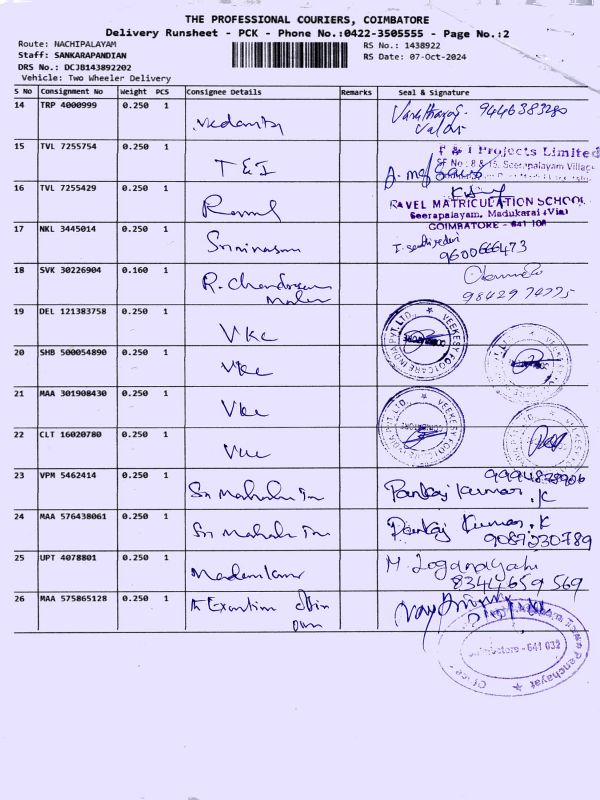 THE PROFESSIONAL COURIERS, COIMBATORE
Delivery Runsheet - PCK - Phone No.:0422-3505555 - Page No.:2
Route: NACHIPALAYAM
RS No.: 1438922
Staff: SANKARAPANDIAN
RS Date: 07-Oct-2024
DRS No.: DCJB143892202
Vehicle: Two Wheeler Delivery
S No Consignment No Weight PCS Consignee Details Remarks Seal & Signature
14 TRP 4000999 0.250 1 9446383280
15 TVL 7255754 0.250 1 T & I
Projects Limited
Seerapalayam Village
16 TVL 7255429 0.250 1
RAVEL MATRICULATION SCHOOL
Seerapalayam, Madukarai (Via)
COIMBATORE - 641 105
17 NKL 3445014 0.250 1 Srinivasan
9600666473
18 SVK 30226904 0.160 1 R. Chandrasem
9842974775
19 DEL 121383758 0.250 1 VKC
VEEKESY FOOTCARE INDIA PVT.LTD.
20 SHB 500054890 0.250 1 VKC
21 MAA 301908430 0.250 1 VKC
22 CLT 16020780 0.250 1 VKC
23 VPM 5462414 0.250 1 Sri Mahalu Pankaj Kumar. K
9994878906
24 MAA 576438061 0.250 1 Sri Mahalu Pankaj Kumar. K
9087330789
25 UPT 4078801 0.250 1 M. Loganayaki
8344659569
26 MAA 575865128 0.250 1
Coimbatore - 641 032
Panchayat